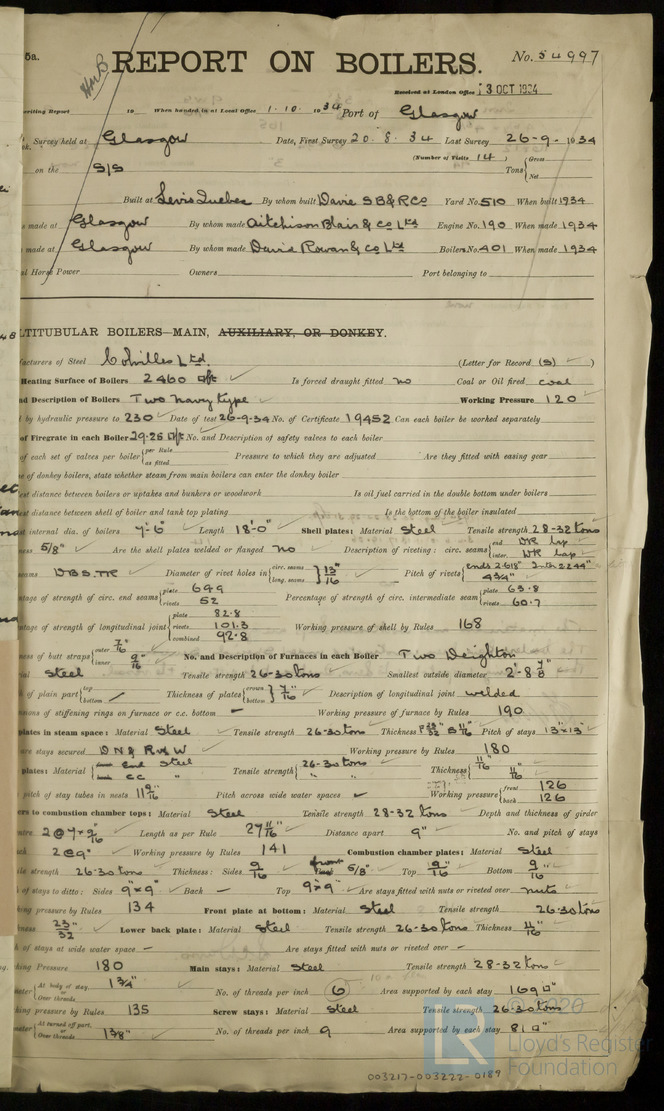 5a.
REPORT ON BOILERS.
No. 54997
Received at London Office 3 OCT 1934
writing Report 19 When handed in at Local Office 1.10.1934 Port of Glasgow
Survey held at Glasgow Date, First Survey 20.8.34 Last Survey 26-9-1934
(Number of Visits 14) Gross
on the S/S Tons
Net
Built at Levis Quebec By whom built Davie SB & R Co Yard No. 510 When built 1934
made at Glasgow By whom made Aitchison Blair & Co Ltd Engine No. 190 When made 1934
made at Glasgow By whom made David Rowan & Co Ltd Boilers No. 401 When made 1934
al Horse Power Owners Port belonging to
LTITUBULAR BOILERS—MAIN, AUXILIARY, OR DONKEY.
facturers of Steel Colvilles Ltd. (Letter for Record (S) )
Heating Surface of Boilers 2460 □ft Is forced draught fitted no Coal or Oil fired coal
nd Description of Boilers Two Navy type Working Pressure 120
by hydraulic pressure to 230 Date of test 26-9-34 No. of Certificate 19452 Can each boiler be worked separately
of Firegrate in each Boiler 29.26 □ft No. and Description of safety valves to each boiler
of each set of valves per boiler per Rule as fitted Pressure to which they are adjusted Are they fitted with easing gear
e of donkey boilers, state whether steam from main boilers can enter the donkey boiler
est distance between boilers or uptakes and bunkers or woodwork Is oil fuel carried in the double bottom under boilers
est distance between shell of boiler and tank top plating Is the bottom of the boiler insulated
st internal dia. of boilers 7'-6" Length 18'-0" Shell plates: Material Steel Tensile strength 28-32 tons
ness 5/8" Are the shell plates welded or flanged no Description of riveting: circ. seams end DR lap
inter. DR lap
eams DBS.TR Diameter of rivet holes in circ. seams long. seams 13/16" Pitch of rivets ends 2.618" Inter 2.244"
4 3/4"
ntage of strength of circ. end seams plate 64.9 rivets 52 Percentage of strength of circ. intermediate seam plate 63.8 rivets 60.7
ntage of strength of longitudinal joint plate 82.8 rivets 101.3 combined 92.8 Working pressure of shell by Rules 168
ness of butt straps outer 7/16" inner 9/16" No. and Description of Furnaces in each Boiler Two Deighton
ial Steel Tensile strength 26-30 tons Smallest outside diameter 2'-8 7/8"
of plain part top bottom Thickness of plates crown bottom 7/16" Description of longitudinal joint welded
sions of stiffening rings on furnace or c.c. bottom — Working pressure of furnace by Rules 190
plates in steam space: Material Steel Tensile strength 26-30 tons Thickness Pitch of stays 13"x13"
are stays secured DN & R & W Working pressure by Rules 180
plates: Material end Steel Tensile strength 26-30 tons Thickness 11/16"
cc " " " 11/16"
pitch of stay tubes in nests 11 9/16" Pitch across wide water spaces — Working pressure front 126 back 126
ers to combustion chamber tops: Material Steel Tensile strength 28-32 tons Depth and thickness of girder
ntre 2@7 x 9/16" Length as per Rule 27 11/16" Distance apart 9" No. and pitch of stays
ch 2@9" Working pressure by Rules 141 Combustion chamber plates: Material Steel
ile strength 26-30 tons Thickness: Sides 9/16 5/8" Top 9/16" Bottom 9/16"
of stays to ditto: Sides 9"x9" Back — Top 9"x9" Are stays fitted with nuts or riveted over nuts
king pressure by Rules 134 Front plate at bottom: Material Steel Tensile strength 26-30 tons
kness 23/32" Lower back plate: Material Steel Tensile strength 26-30 tons Thickness 11/16"
h of stays at wide water space — Are stays fitted with nuts or riveted over —
king Pressure 180 Main stays: Material Steel Tensile strength 28-32 tons
meter At body of stay, or Over threads 1 3/4" No. of threads per inch 6 Area supported by each stay 169 □"
king pressure by Rules 135 Screw stays: Material Steel Tensile strength 26-30 tons
meter At turned off part, or Over threads 1 3/8" No. of threads per inch 9 Area supported by each stay 81 □"
LR © 2020
Lloyd's Register
Foundation
003217-003222-0189